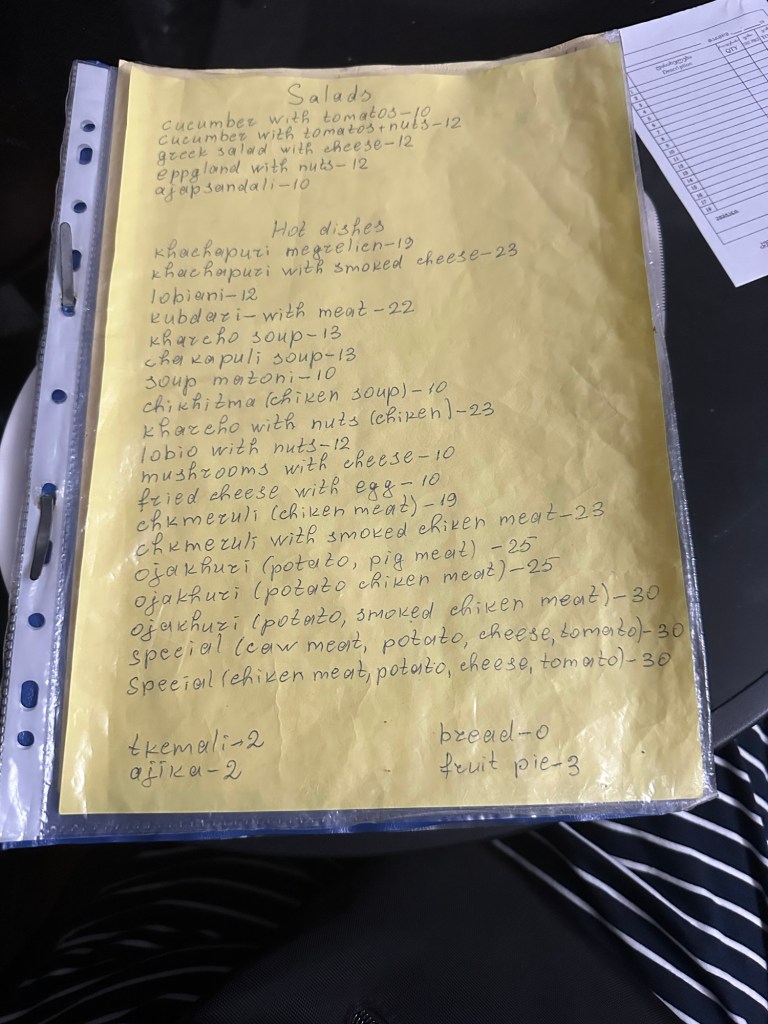 Salads
cucumber with tomatos-10
cucumber with tomatos+nuts-12
greek salad with cheese-12
eppgland with nuts-12
ajapsandali-10
Hot dishes
khachapuri megrelien-19
khachapuri with smoked cheese-23
lobiani-12
kubdari-with meat-22
kharcho soup-13
chakapuli soup-13
soup matoni-10
chikhitma (chiken soup)-10
kharcho with nuts (chiken]-23
lobio with nuts-12
mushrooms with cheese-10
fried cheese with egg-10
chkmeruli (chiken meat)-19
chkmeruli with smoked chiken meat-23
ojakhuri (potato, pig meat) -25
ojakhuri (potato chiken meat)-25
ojakhuri (potato, smoked chiken meat)-30
special (caw meat, potato, cheese, tomato)-30
Special (chiken meat, potato, cheese, tomato)-30
tkemali-2
ajika-2
bread-0
fruit pie-3
Description
QTY